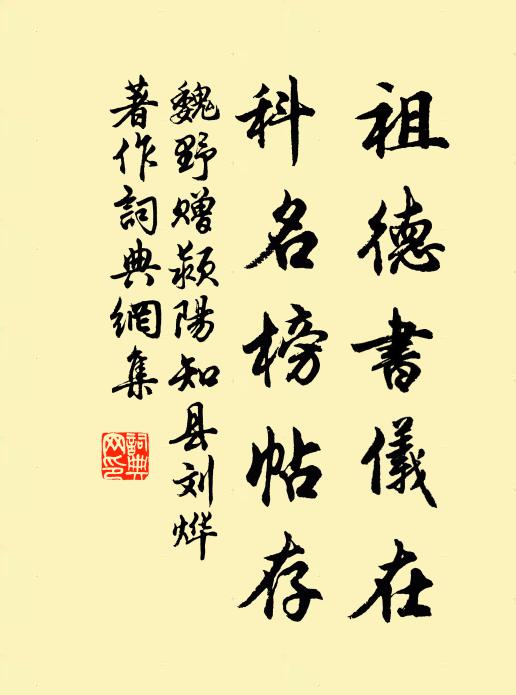 祖德書儀在
科名榜帖存
魏野贈颍陽知县刘烨
著作詞典網集
詞典網印